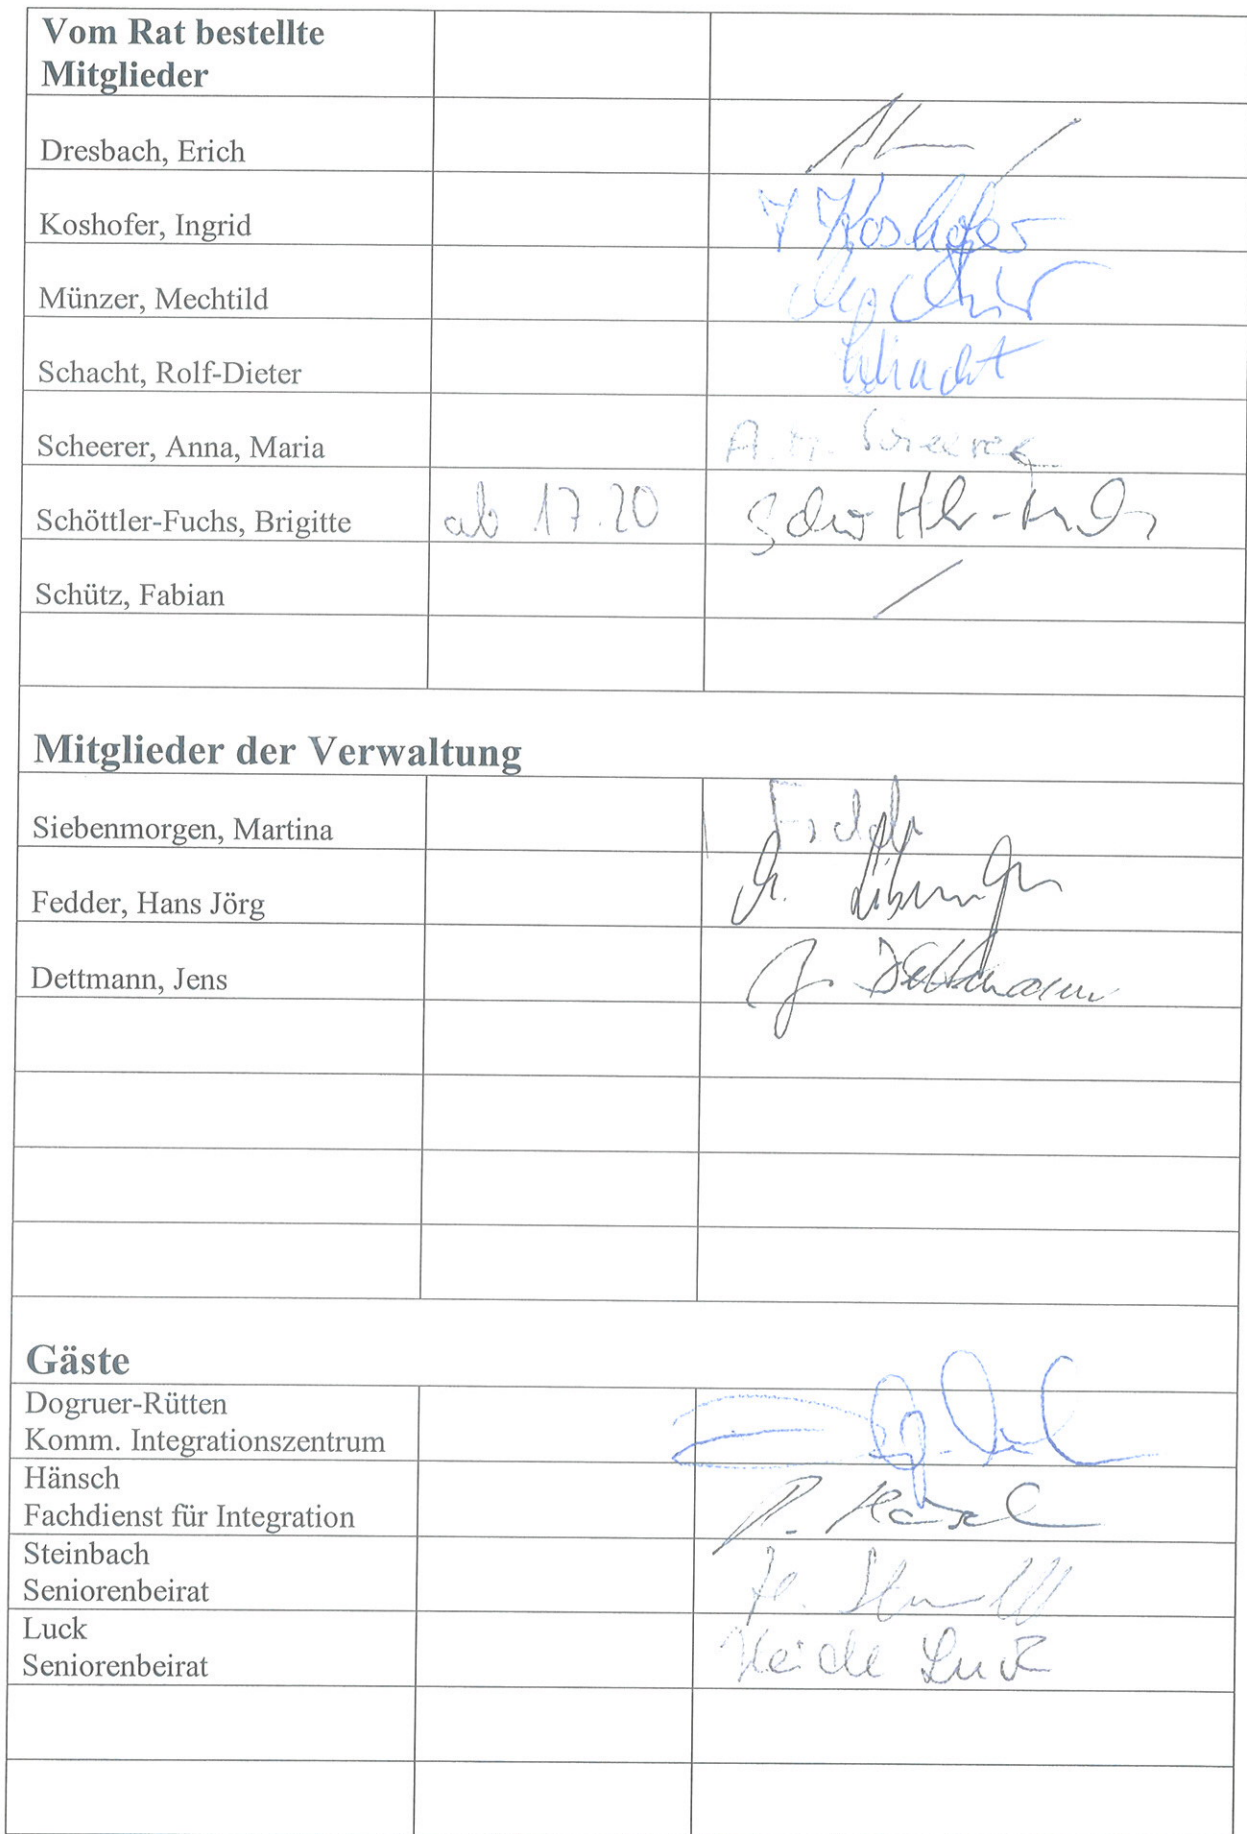 Vom Rat bestellte
Mitglieder
Dresbach, Erich
Koshofer, Ingrid Koshofer
Münzer, Mechtild
Schacht, Rolf-Dieter Schacht
Scheerer, Anna, Maria A. M. Scheerer
Schöttler-Fuchs, Brigitte ab 17.20 Schöttler-Fuchs
Schütz, Fabian /
Mitglieder der Verwaltung
Siebenmorgen, Martina
Fedder, Hans Jörg
Dettmann, Jens J. Dettmann
Gäste
Dogruer-Rütten
Komm. Integrationszentrum
Hänsch
Fachdienst für Integration
Steinbach
Seniorenbeirat
Luck
Seniorenbeirat Heide Luck